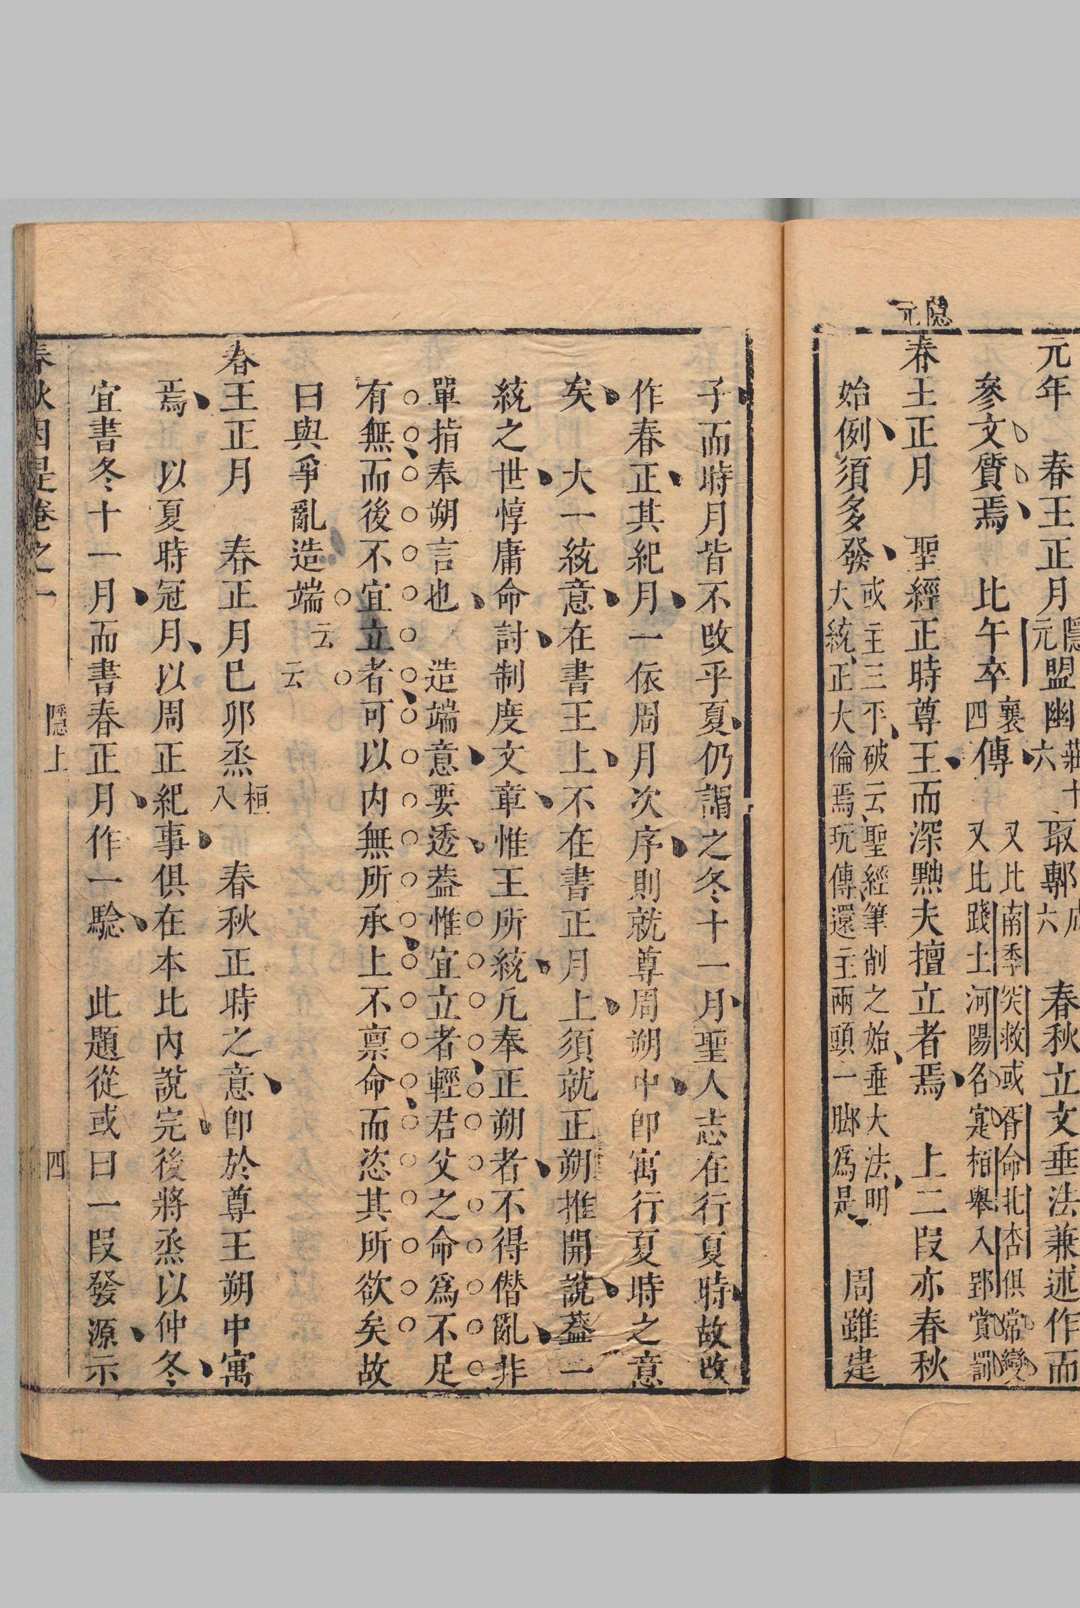 元年　春王正月隱元盟幽莊十六取鄟成六　春秋立文垂法兼述作而
參文質焉　比午卒襄四傳又比南季突救或胥命北杏俱常變又比踐土河陽名寔柏舉入郢賞罰
隱元
春王正月　聖經正時尊王而深黜夫擅立者焉　上二叚亦春秋
始例須多發或主三平破云聖經筆削之始垂大法明大統正大倫焉玩傳還主兩頭一脚爲是　周雖建
子而時月皆不改乎夏仍謂之冬十一月聖人志在行夏時故改
作春正其紀月一依周月次序則就尊周朔中卽寓行夏時之意
矣　大一統意在書王上不在書正月上須就正朔推開說葢一
統之世惇庸命討制度文章惟王所統凢奉正朔者不得僭亂非
單指奉朔言也　造端意要透葢惟宜立者輕君父之命爲不足
有無而後不宜立者可以内無所承上不禀命而恣其所欲矣故
曰與爭亂造端云云
春王正月　春正月巳卯烝桓八　春秋正時之意卽於尊王朔中寓
焉　以夏時冠月以周正紀事俱在本比內說完後將烝以仲冬
宜書冬十一月而書春正月作一騐　此題從或曰一叚發源示
春秋因是卷之一　隱上　四